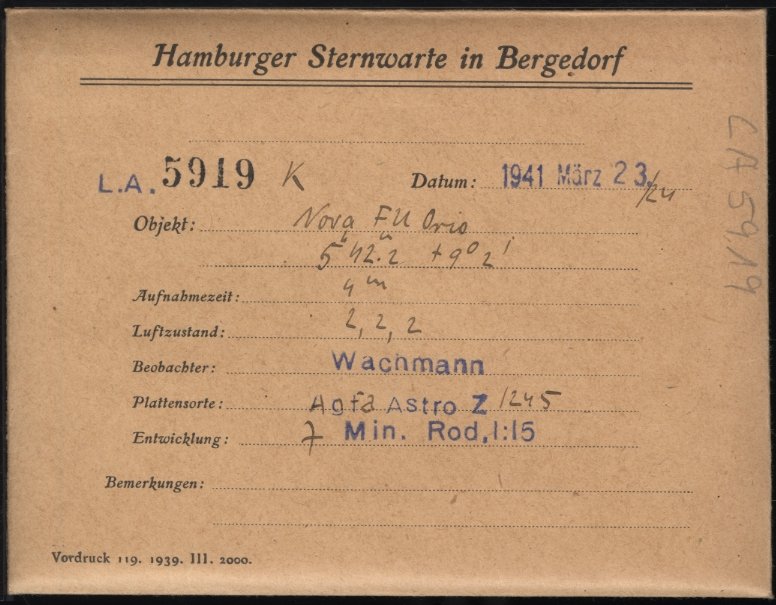 Hamburger Sternwarte in Bergedorf
L.A. 5919 K
Datum: 1941 März 23./24
Objekt: Nova FU Orio
5ʰ42.ᵐ2 +9°2'
Aufnahmezeit: 4ᵐ
Luftzustand: 2, 2, 2
Beobachter: Wachmann
Plattensorte: Agfa Astro Z 1245
Entwicklung: 7 Min. Rod, 1:15
Bemerkungen:
Vordruck 119. 1939. III. 2000.
LA 5919